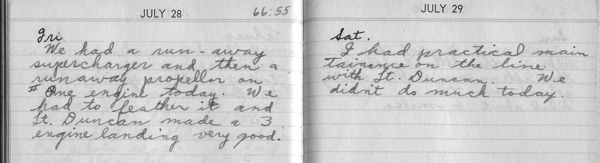 JULY 28
66:55
Fri.
We had a run-away
supercharger and then a
runaway propellor on
# One engine today. We
had to feather it and
Lt. Duncan made a 3
engine landing very good.
JULY 29
Sat.
I had practical main
tainence on the line
with Lt. Duncan. We
didn't do much today.